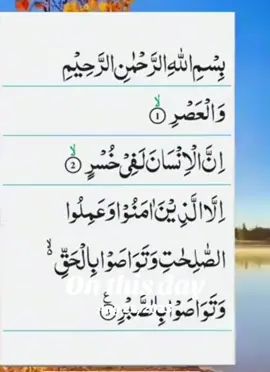 بِسْمِ اللهِ الرَّحْمٰنِ الرَّحِيْمِ
وَالْعَصْرِ ۙ﴿1﴾
اِنَّ الْاِنْسَانَ لَفِيْ خُسْرٍ ۙ﴿2﴾
اِلَّا الَّذِيْنَ اٰمَنُوْا وَعَمِلُوا
الصّٰلِحٰتِ وَتَوَاصَوْا بِالْحَقِّ ۙ
On this day
وَتَوَاصَوْا بِالصَّبْرِ